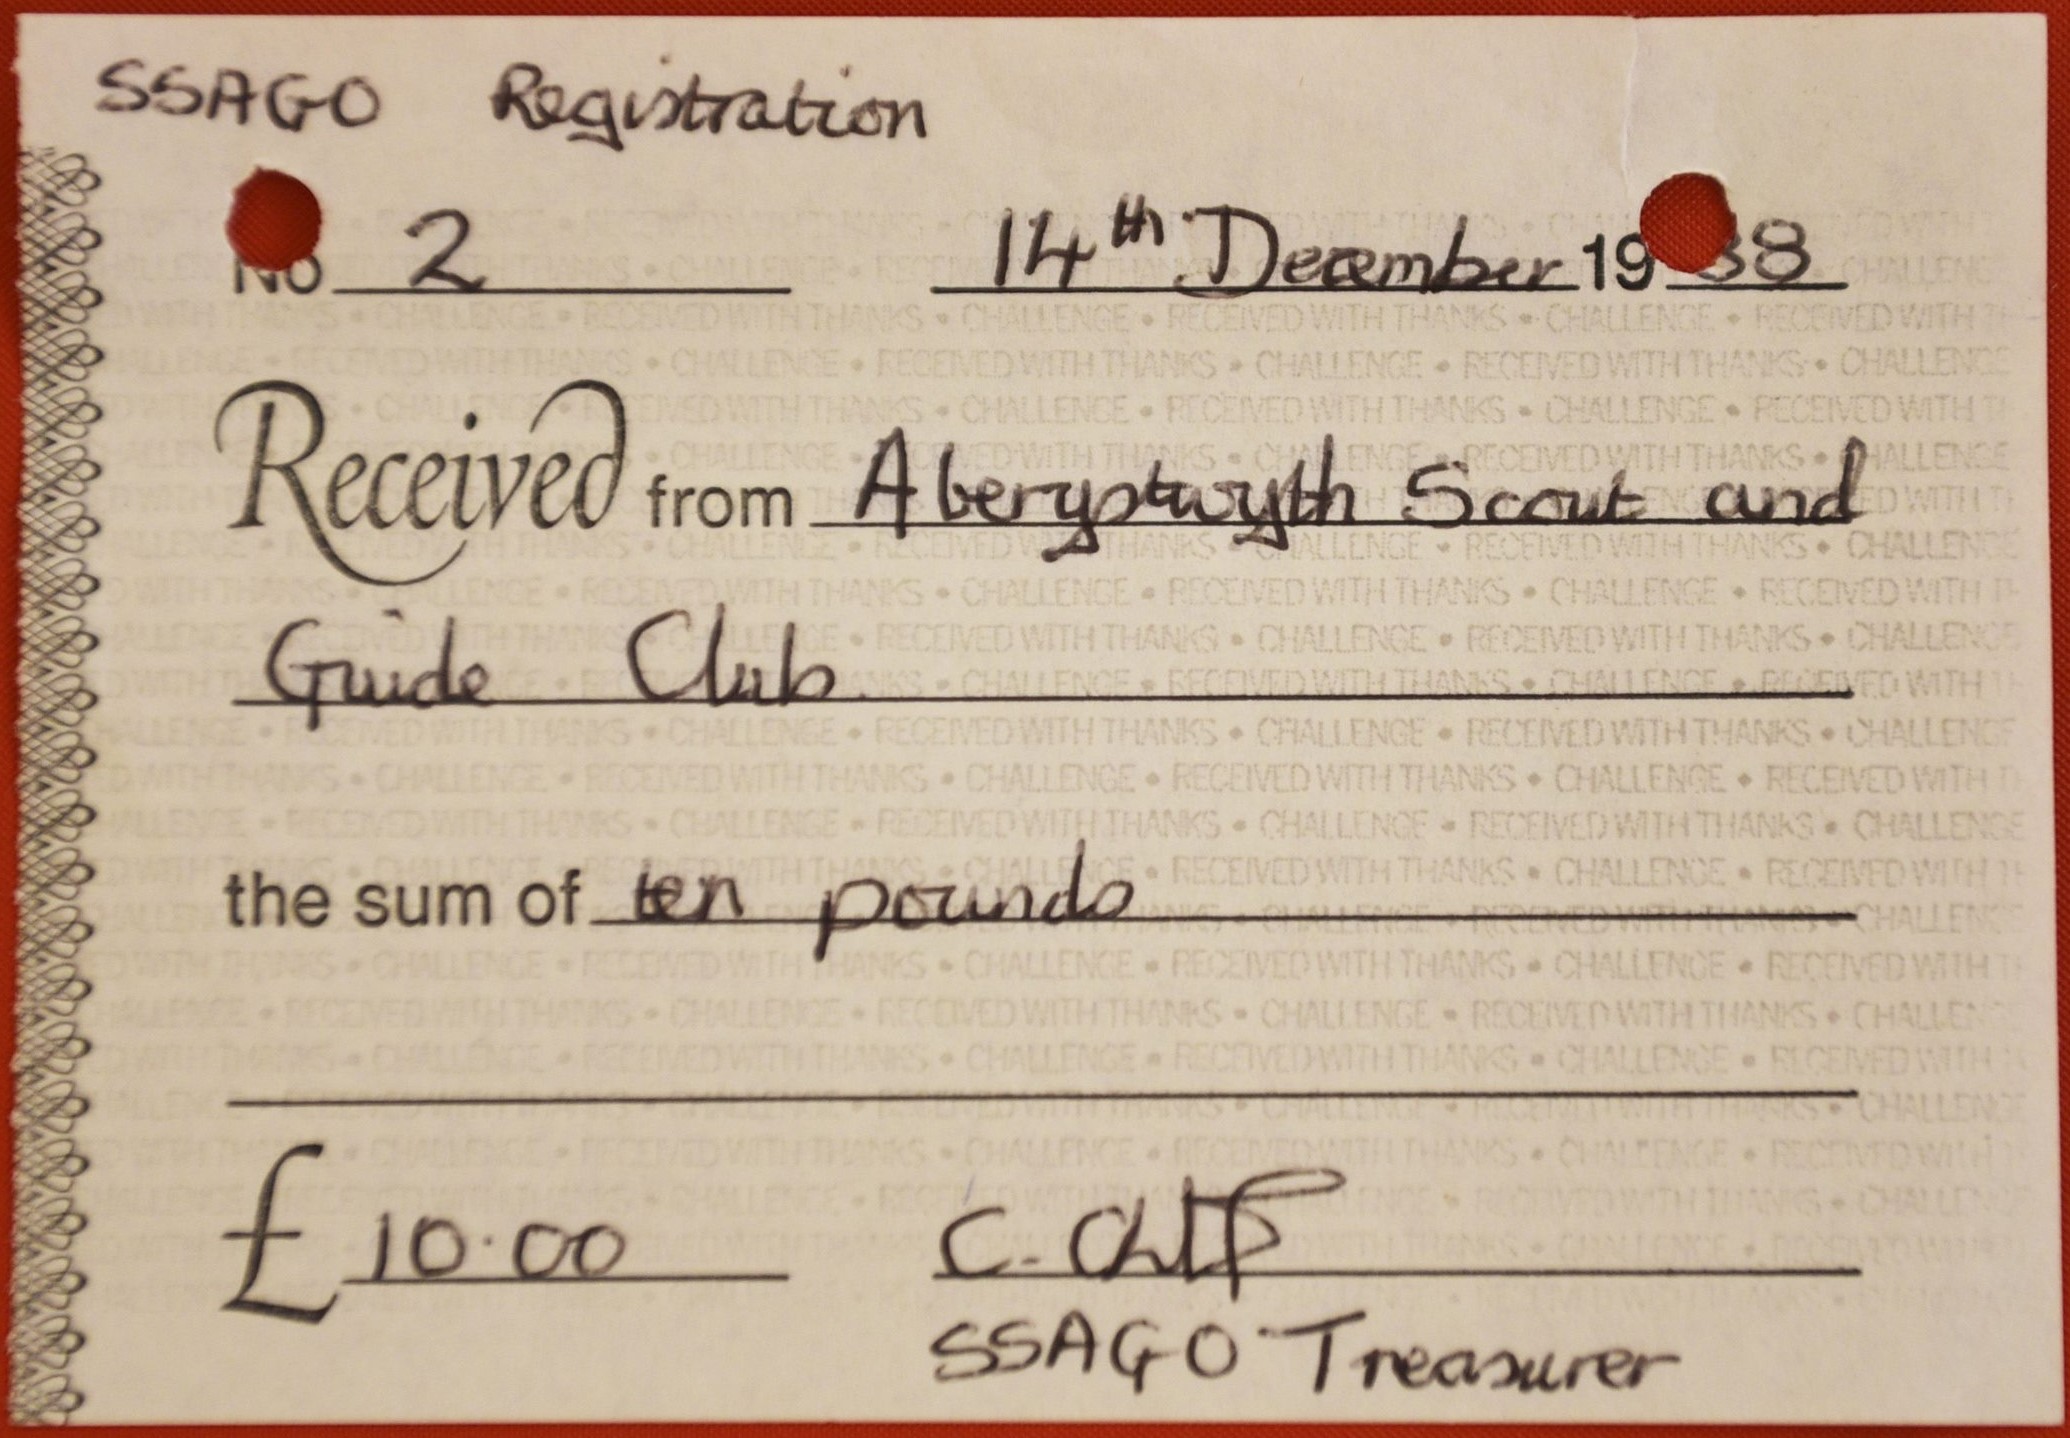 SSAGO Registration
No 2 14th December 1988
Received from Aberystwyth Scout and
Guide Club
the sum of ten pounds
£ 10.00 C.
SSAGO Treasurer